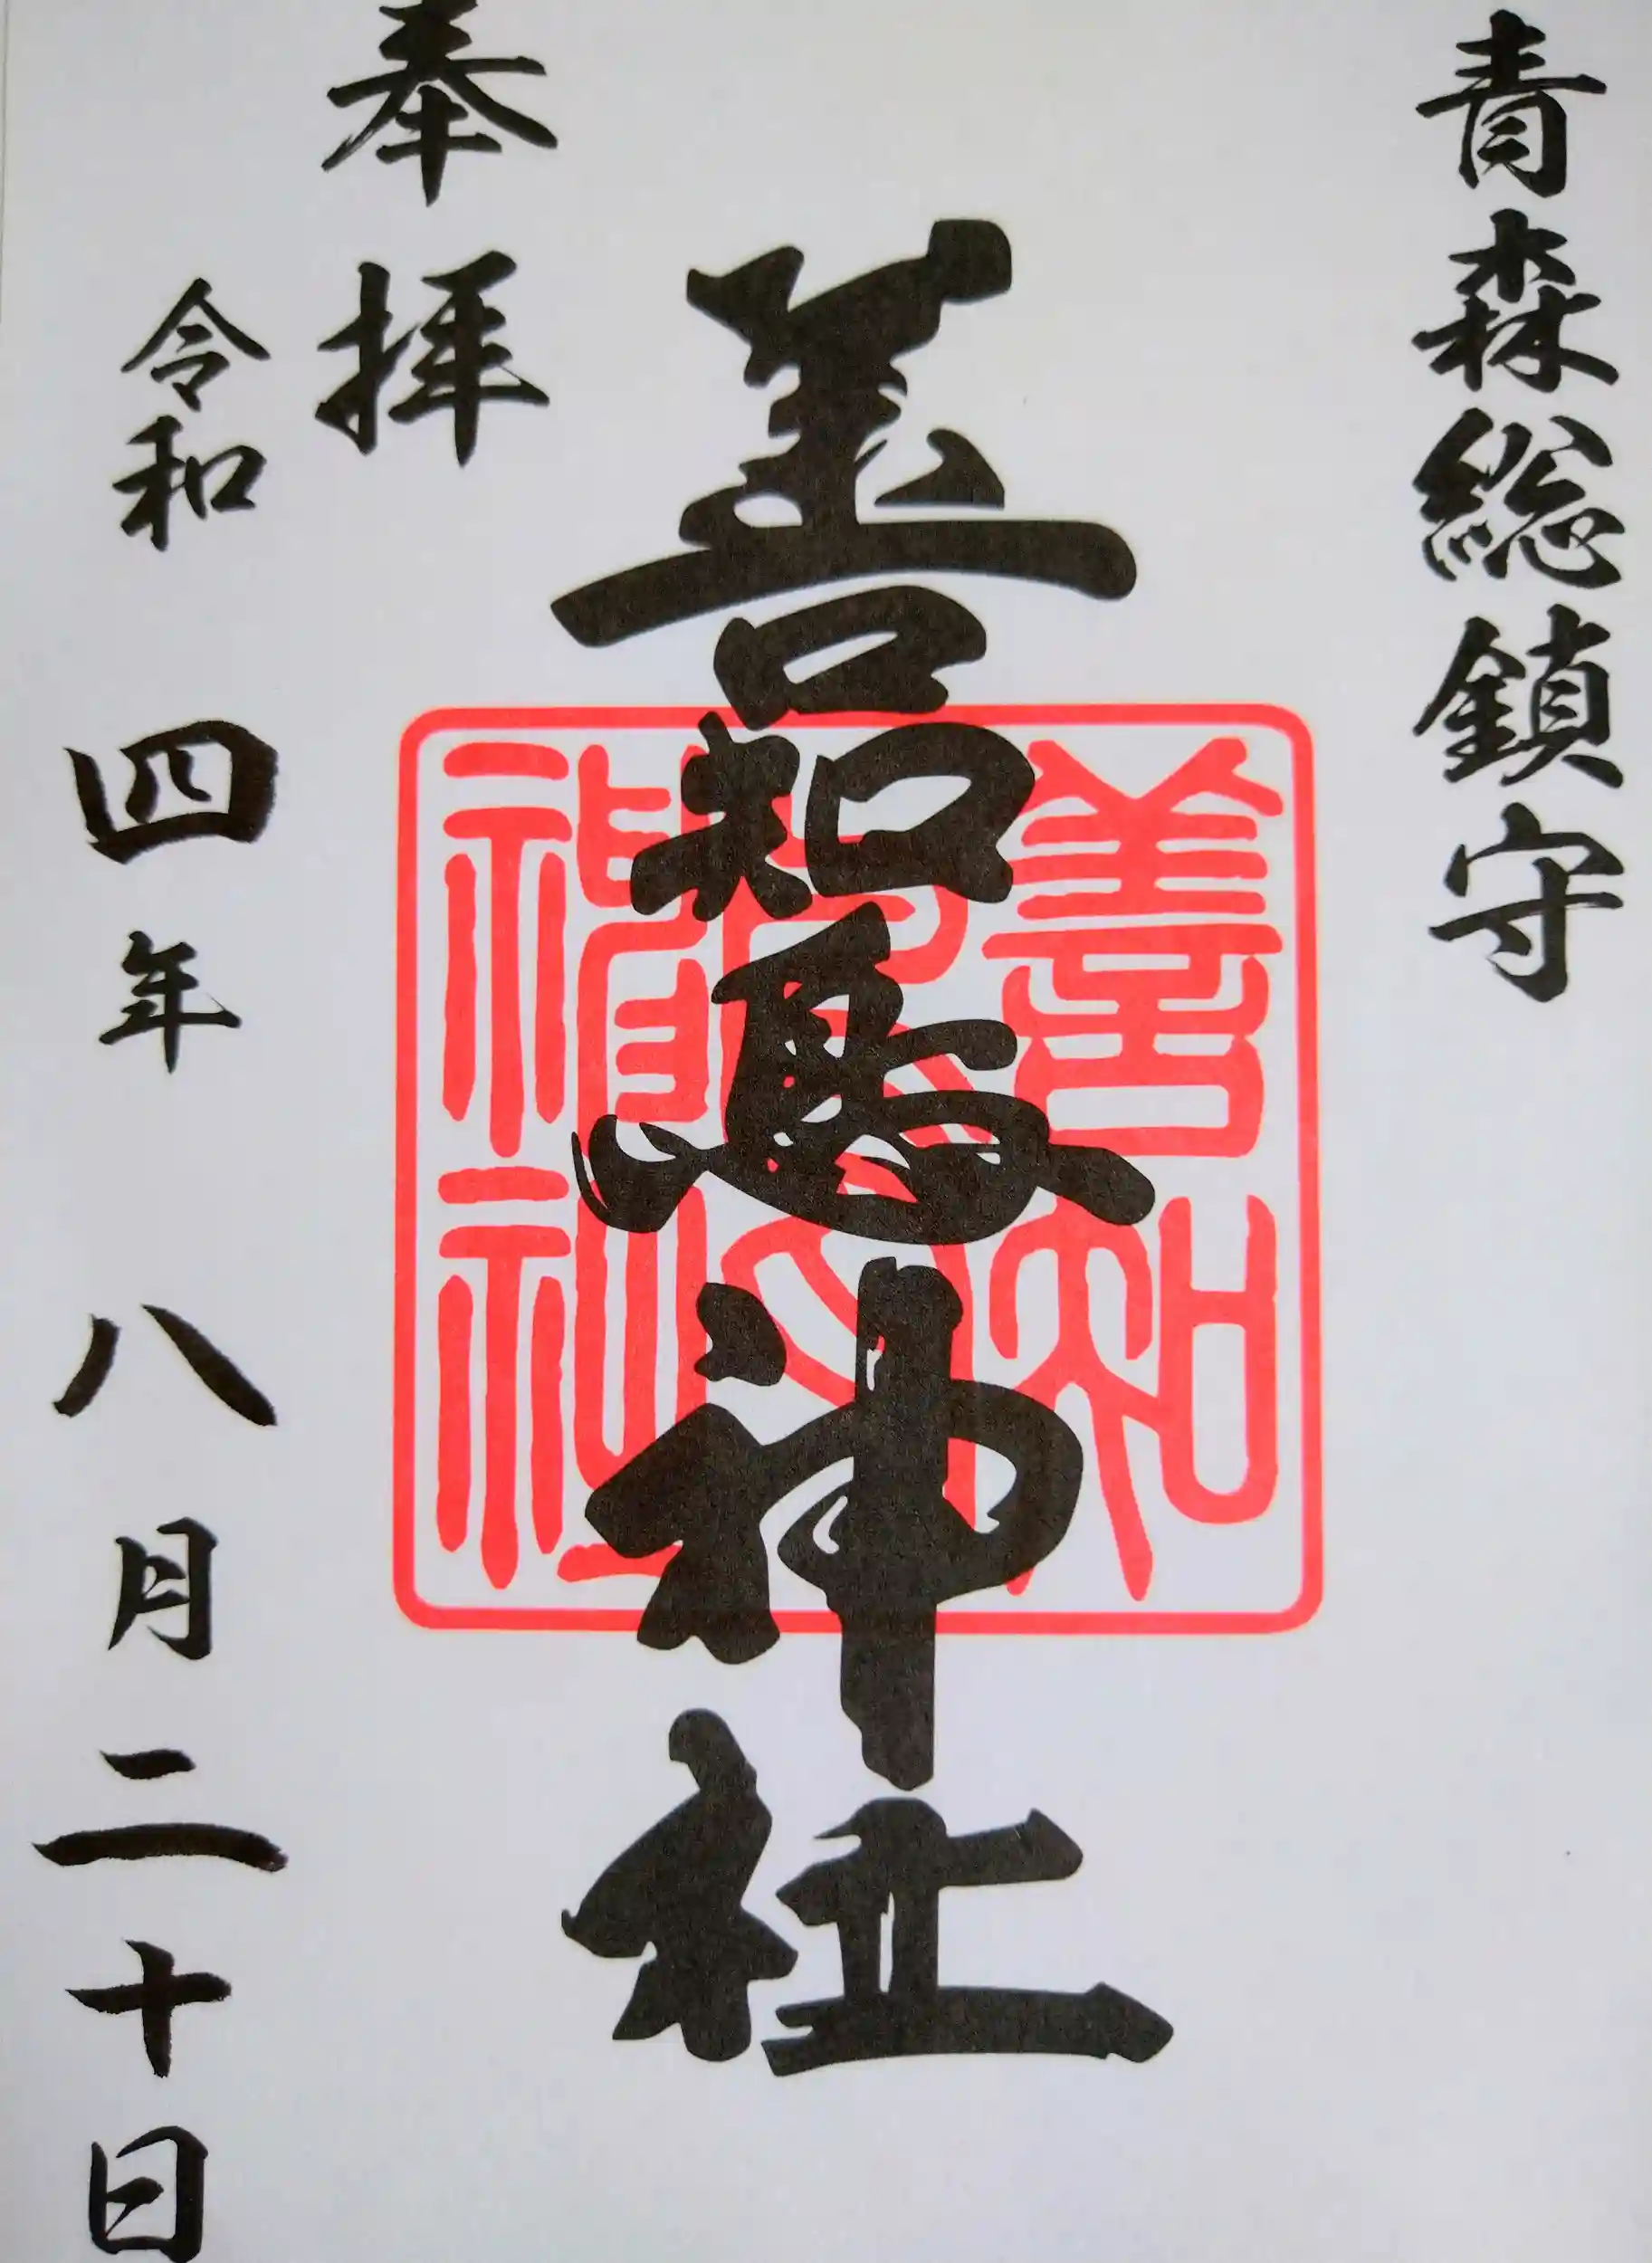 青森総鎮守
善知鳥神社
善知
鳥之印
神社
奉拝
令和四年八月二十日